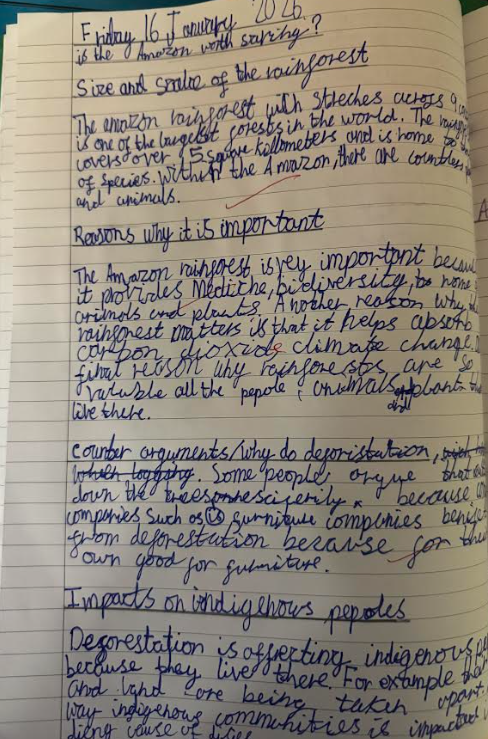 Friday 16 January 2026
is the Amazon worth saving?
Size and scale of the rainforest
The amazon rainforest with streches across 9
is one of the largest forests in the world. The
covers over 5 square killometers and is home to
of species. Within the Amazon, there are countless
and animals.
Reasons why it is important
The Amazon rainforest is vey important
it provides Medicine, biodiversity, to home
animals and plants. Another reason why
rainforest matters is that it helps absorb
carbon dioxide climate change.
final reason why rainforests are so
valuable all the pepole, animals plants
live there.
counter arguments/why do deforistation,
which logging. Some people argue that
down the trees because,
companies such as furniture companies
from deforestation because for
own good for furniture.
Impacts on indigenows pepoles
Deforestation is affecting indigenous
because they live there. For example
and land are being taken apart.
way indigenous communities is impacted
dieng cause of